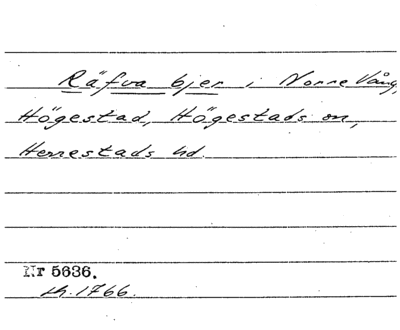 Räfva bjer i Norre Vång,
Högestad, Högestads sn,
Herrestads hd.
Nr 5636.
LH. 1766.